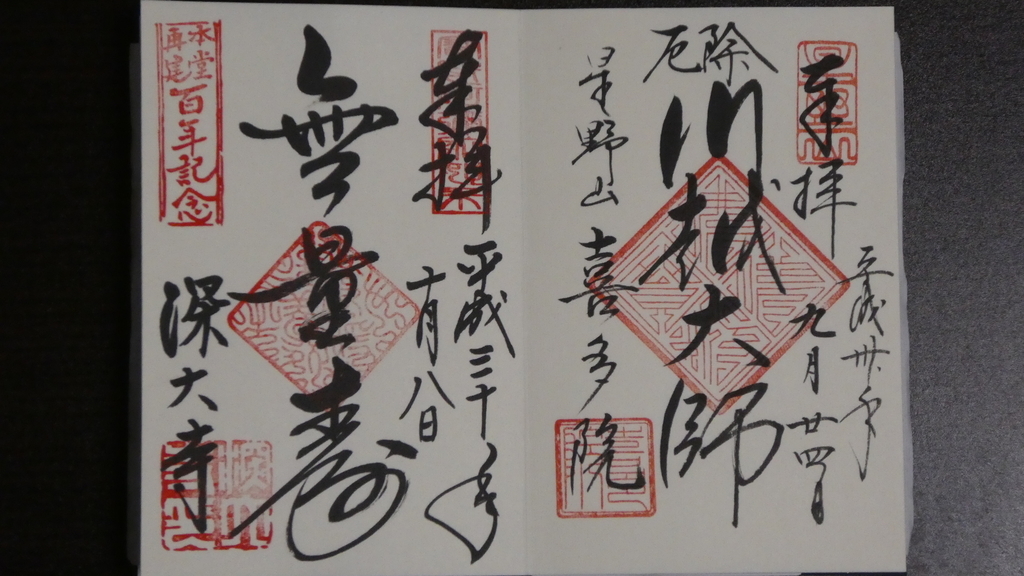 奉拝
平成卅年
九月廿四日
厄除
川越大師
星野山
喜多院
奉拝
平成三十年
十月八日
無量寿
本堂
再建
百年記念
深大寺